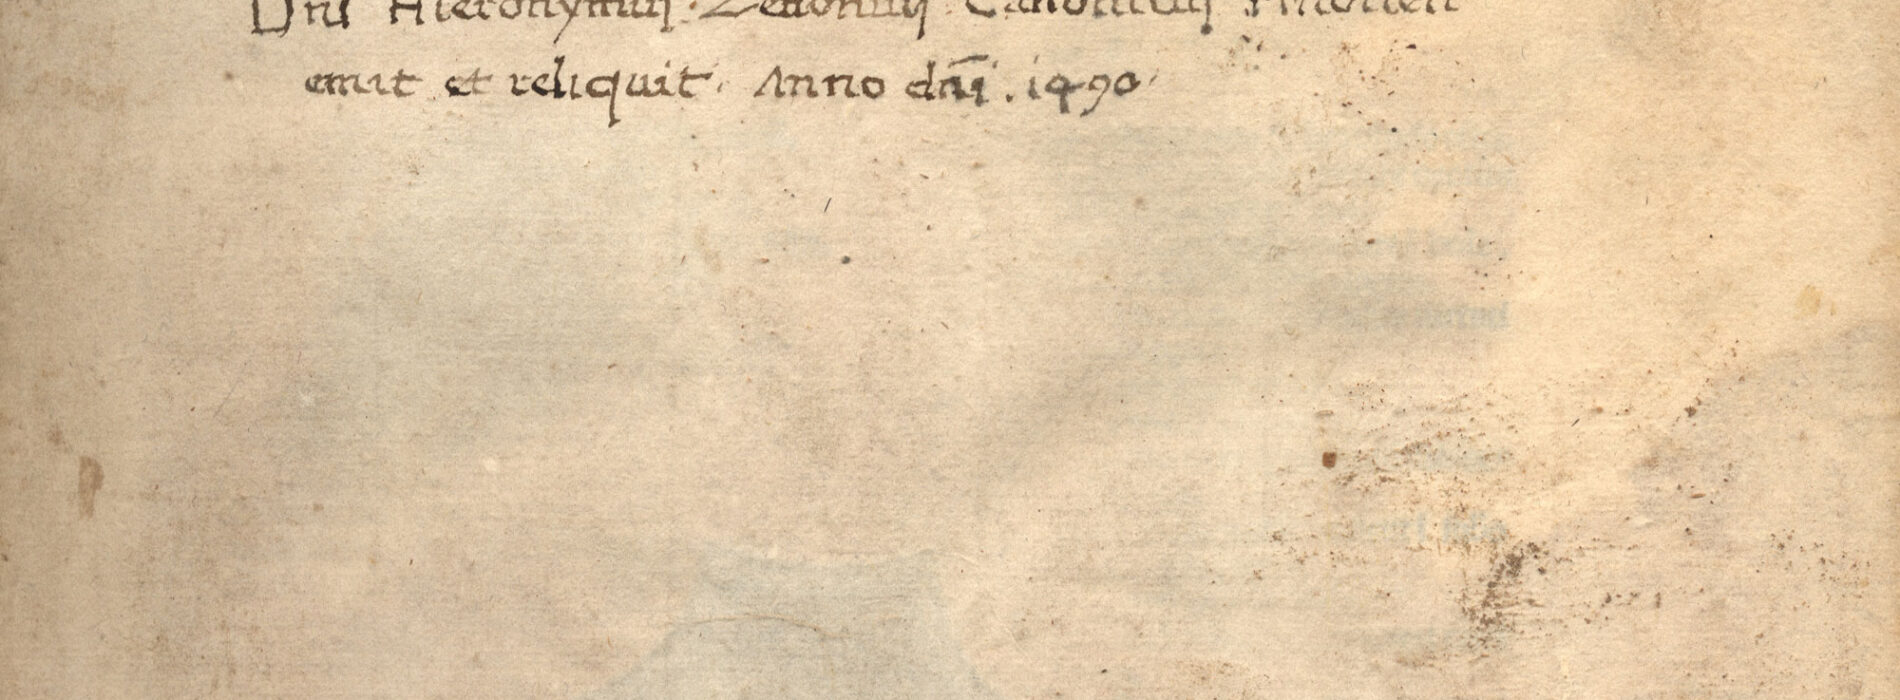 Dns Hieronymus Zenonius Canonicus
emit et reliquit. Anno dnī. 1490